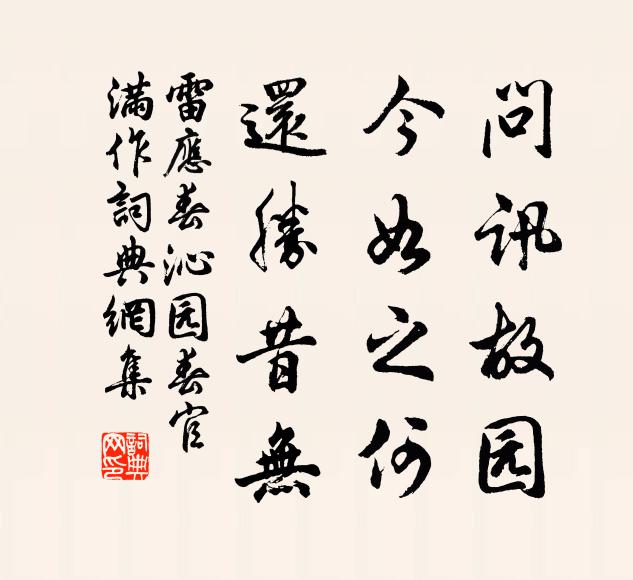 問訊故园
今如之何
還勝昔無
雷應春沁园春官
滿作詞典網集
詞典网印